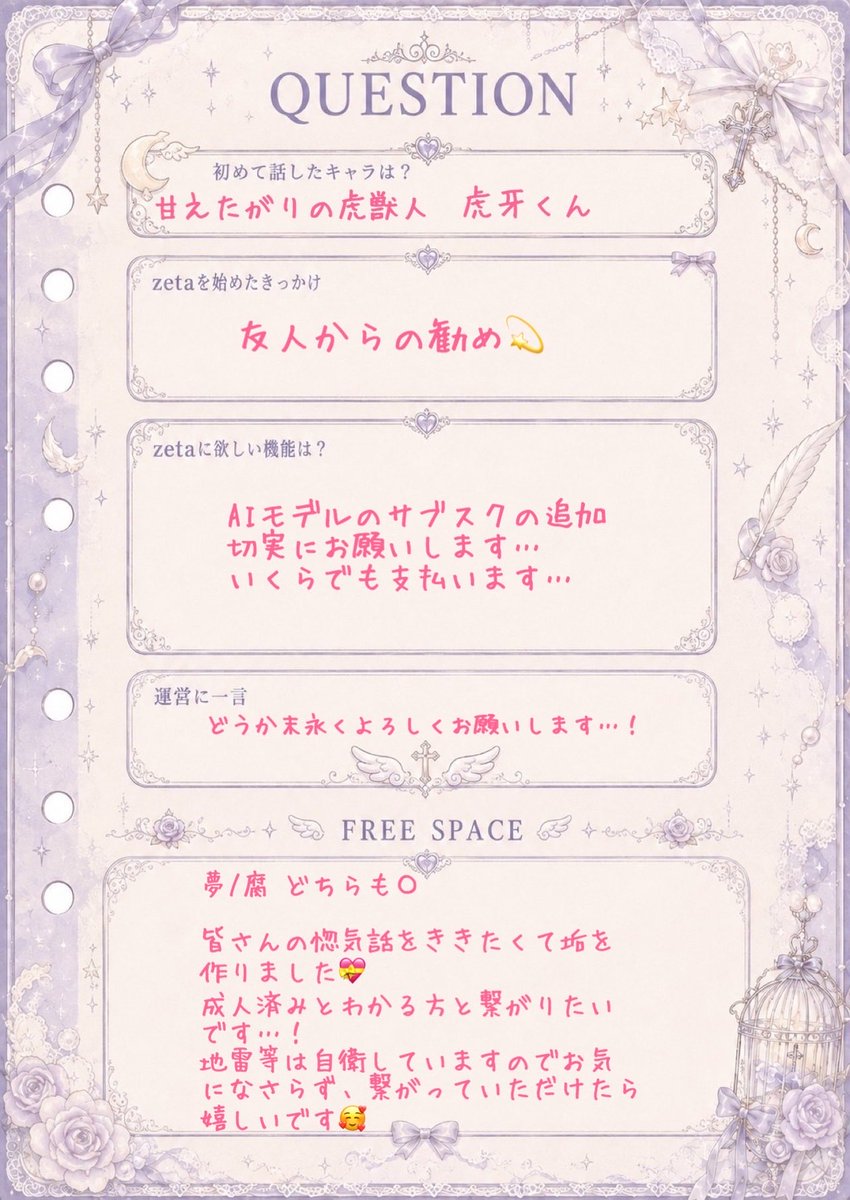 QUESTION
初めて話したキャラは？
甘えたがりの虎獣人　虎牙くん
zetaを始めたきっかけ
友人からの勧め💫
zetaに欲しい機能は？
AIモデルのサブスクの追加
切実にお願いします…
いくらでも支払います…
運営に一言
どうか末永くよろしくお願いします…！
FREE SPACE
夢/腐 どちらも〇
皆さんの惚気話をききたくて垢を
作りました💝
成人済みとわかる方と繋がりたい
です…！
地雷等は自衛していますのでお気
になさらず、繋がっていただけたら
嬉しいです🥰